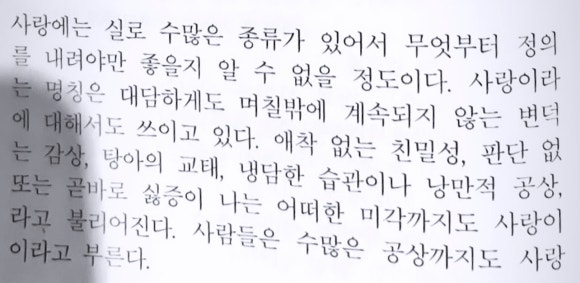 사랑에는 실로 수많은 종류가 있어서 무엇부터 정의
를 내려야만 좋을지 알 수 없을 정도이다. 사랑이라
는 명칭은 대담하게도 며칠밖에 계속되지 않는 변덕
에 대해서도 쓰이고 있다. 애착 없는 친밀성, 판단 없
는 감상, 탕아의 교태, 냉담한 습관이나 낭만적 공상,
또는 곧바로 싫증이 나는 어떠한 미각까지도 사랑이
라고 불리어진다. 사람들은 수많은 공상까지도 사랑
이라고 부른다.